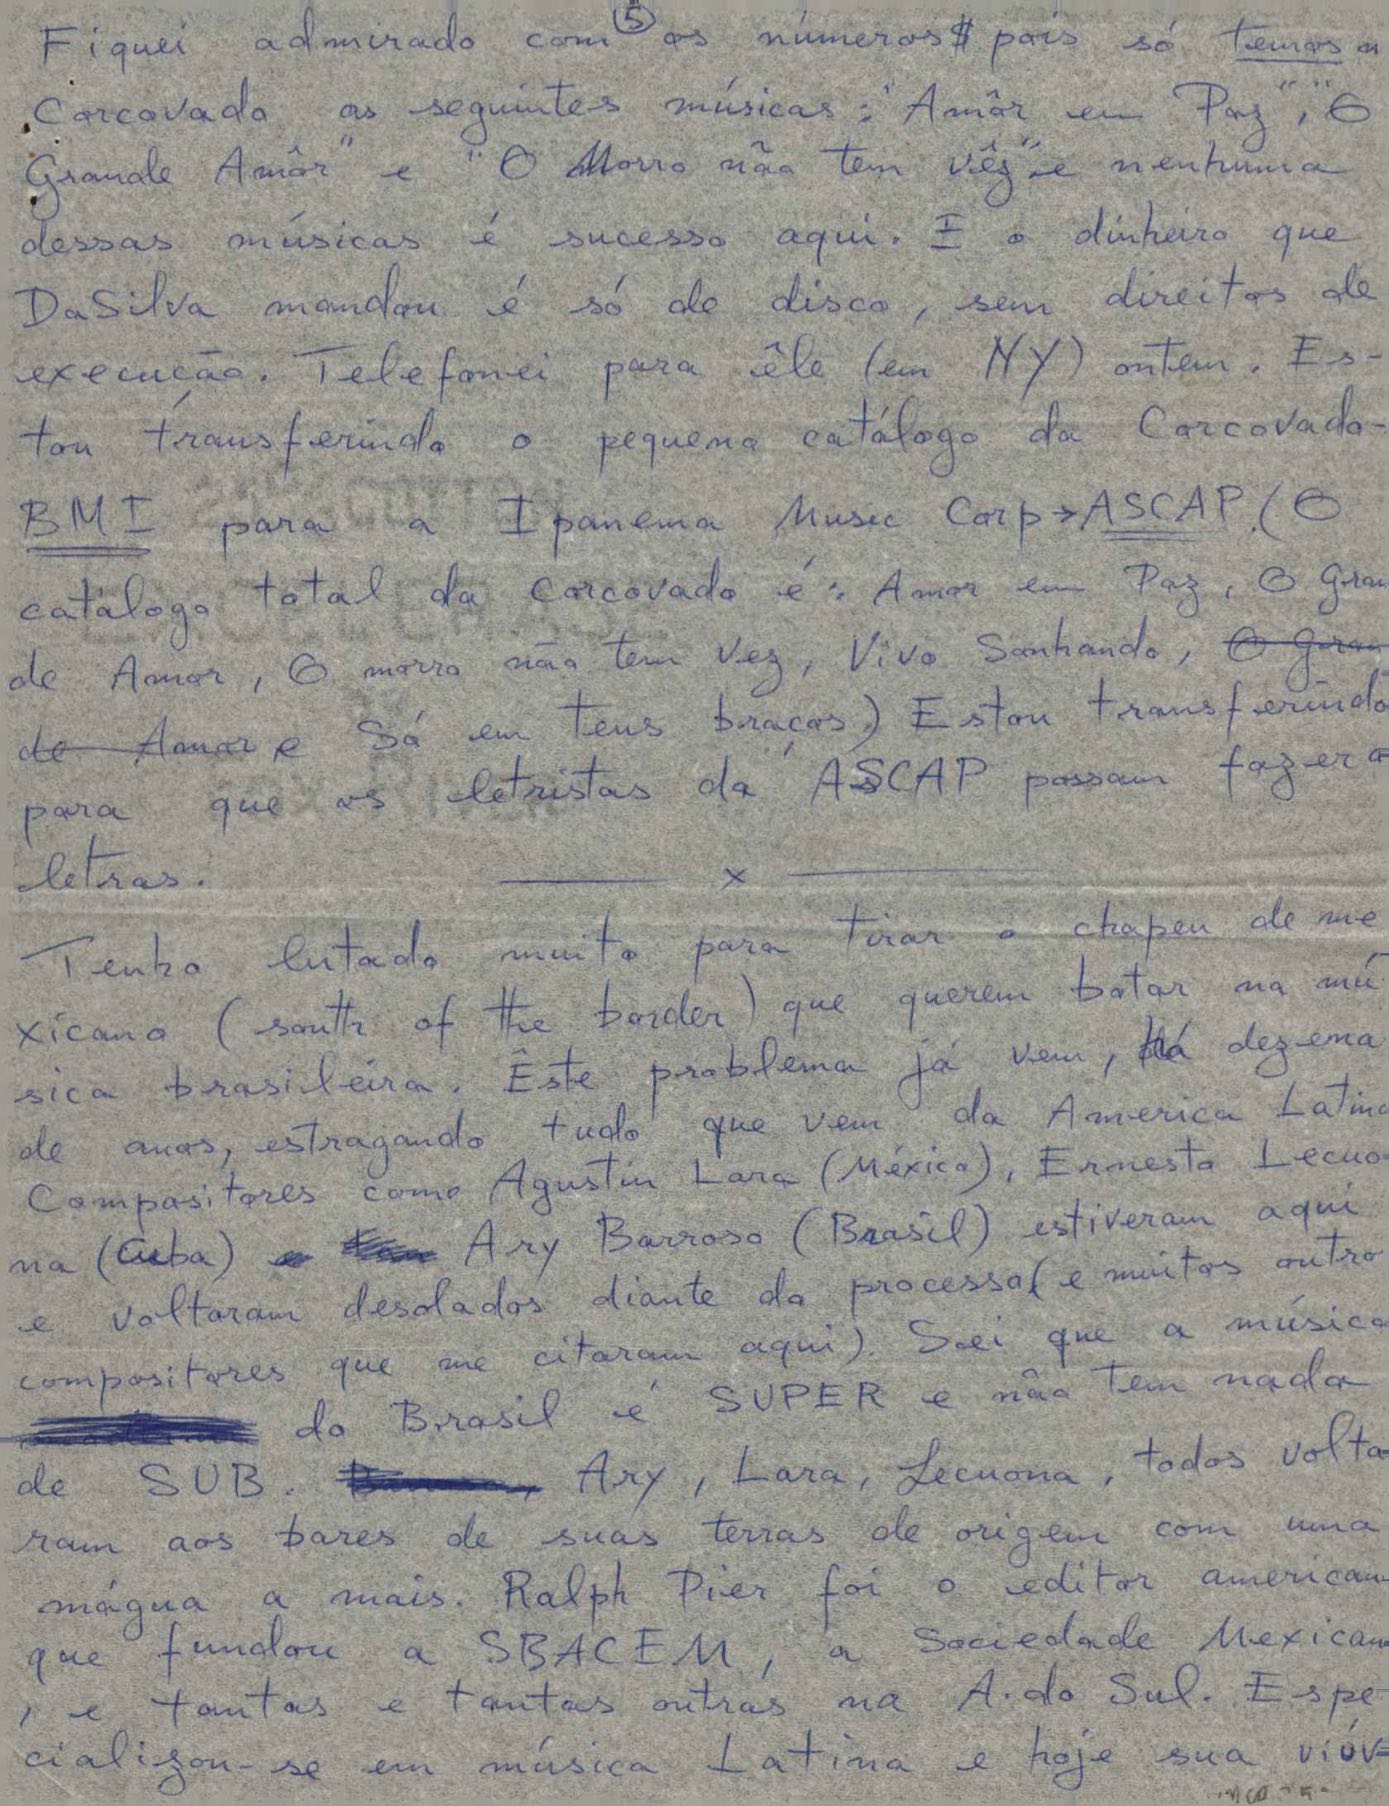 5
Fiquei admirado com os números $ pois só temos n
Corcovado as seguintes músicas: "Amôr em Paz", "O
Grande Amôr" e "O Morro não tem vêz" e nenhuma
dessas músicas é sucesso aqui. E o dinheiro que
DaSilva mandou é só de disco, sem direitos de
execução. Telefonei para êle (em NY) ontem. Es-
tou transferindo o pequeno catálogo da Corcovado-
BMI para a Ipanema Music Corp→ASCAP. (O
catálogo total da Corcovado é: Amor em Paz, O Gran
de Amor, O morro não tem vez, Vivo Sonhando, O Gran
de Amor e Só em teus braços) Estou transferindo
para que os letristas da ASCAP possam fazer a
letras. x
Tenho lutado muito para tirar o chapeu de me
xicano (south of the border) que querem botar na mú
sica brasileira. Êste problema já vem, há dezena
de anos, estragando tudo que vem da America Latina
Compositores como Agustín Lara (México), Ernesto Lecuo-
na (Cuba) Ary Barroso (Brasil) estiveram aqui
e voltaram desolados diante do processo (e muitos outro
compositores que me citaram aqui). Sei que a música
do Brasil é SUPER e não tem nada
de SUB. Ary, Lara, Lecuona, todos volta-
ram aos bares de suas terras de origem com uma
mágua a mais. Ralph Pier foi o editor american-
que fundou a SBACEM, a Sociedade Mexican-
, e tantas e tantas outras na A. do Sul. Espe-
cializou-se em música Latina e hoje sua viúv-